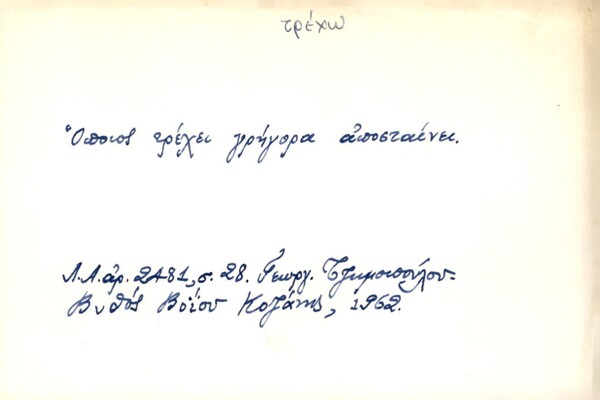 τρέχω
Ὅποιος τρέχει γρήγορα ἀποσταίνει.
Λ.Λ. ἀρ. 2481, σ. 28. Γεωργ. Τζημοπούλου.
Βυθός Βοΐου Κοζάνης, 1962.